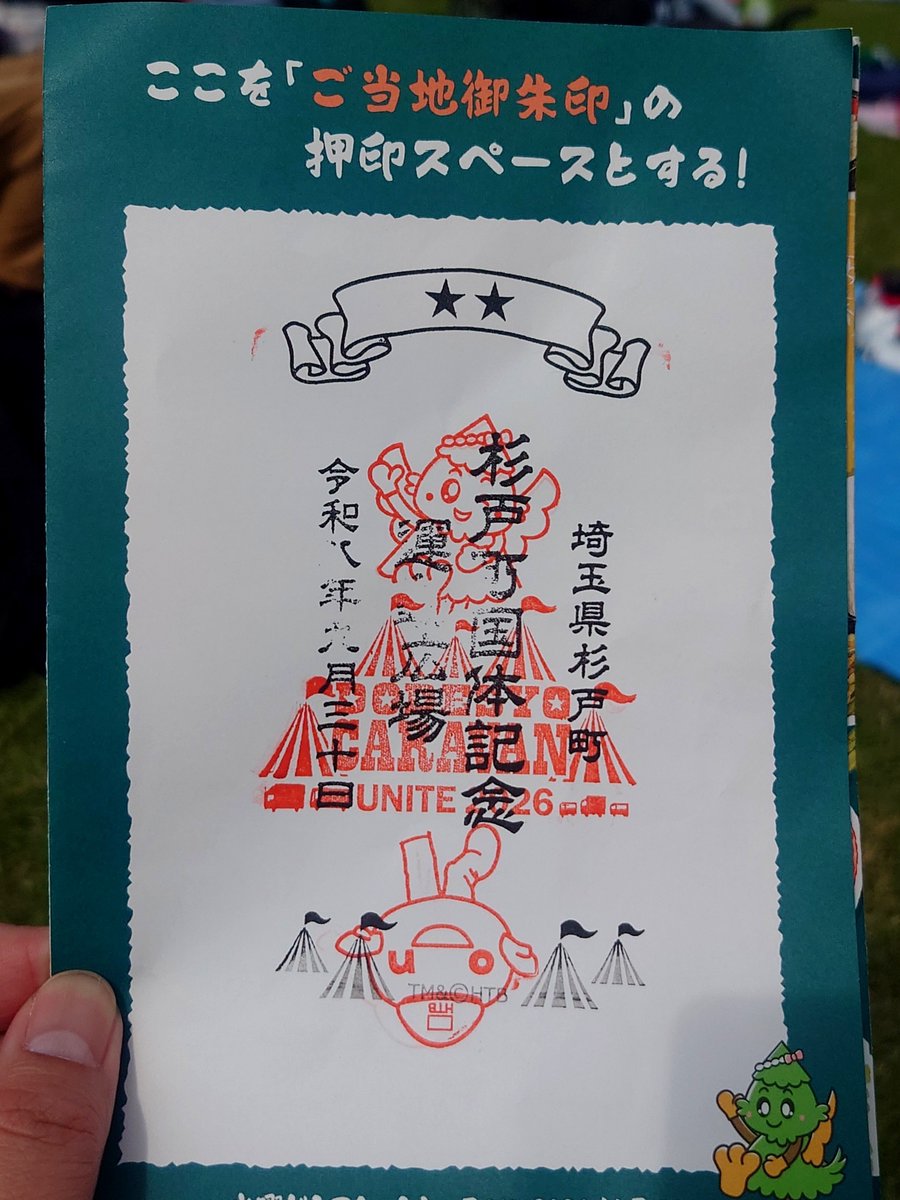 ここを「ご当地御朱印」の
押印スペースとする!
★★
埼玉県杉戸町
杉戸町国体記念
運 広場
令和八年九月三十日
CARAVAN
UNITE 2026
uno
TM&©HTB
HTB